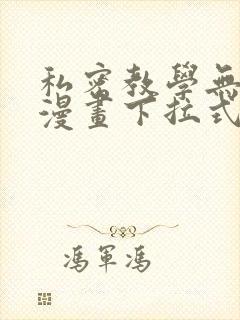 私密教學無
漫畫下拉式
馮軍馮